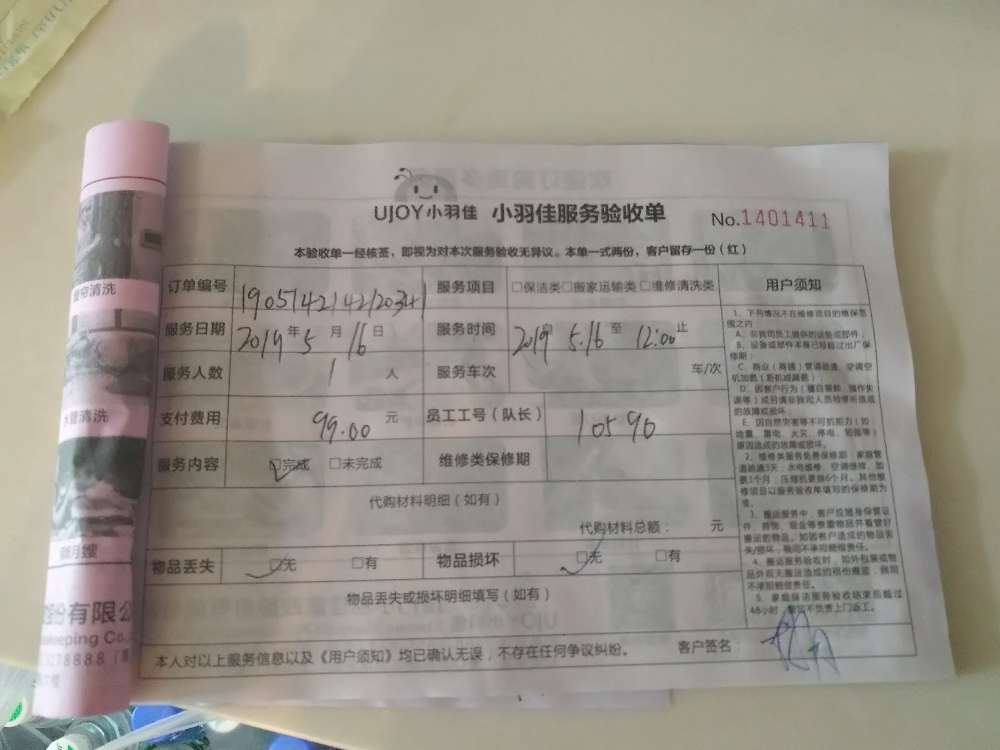 UJOY小羽佳 小羽佳服务验收单 No.1401411
本验收单一经核签，即视为对本次服务验收无异议。本单一式两份，客户留存一份（红）
订单编号 1905142142120341 服务项目 □保洁类□搬家运输类□维修清洗类
服务日期 2019年5月16日 服务时间 2019 5.16 至 12:00 止
服务人数 1 人 服务车次 车/次
支付费用 99.00 元 员工工号（队长） 10590
服务内容 □完成 □未完成 维修类保修期
代购材料明细（如有）
代购材料总额： 元
物品丢失 □无 □有 物品损坏 □无 □有
物品丢失或损坏明细填写（如有）
本人对以上服务信息以及《用户须知》均已确认无误，不存在任何争议纠纷。 客户签名：
用户须知
1、下列情况不在维修项目的维保范
围之内
A、非我司员工提供的设备或部件；
B、设备或部件本身已经超过出厂保
修期；
C、商业（商铺）管道疏通、空调空
机加氟（新机或漏氟）
E、因自然灾害等不可抗拒力（如：
地震、雷电、火灾、停电、短路等）
原因造成的故障或损坏。
2、维修类服务免费保修期：家庭管
道疏通3天，水电维修、空调维修、加
氟1个月；压缩机更换6个月。其他维
修项目以服务验收单填写的保修期为
准。
3、搬运服务中，客户应随身保管证
件、首饰、现金等贵重物品并看管好
搬运的物品。如因客户造成的物品丢
失/损坏，我司不承担赔偿责任。
4、搬运服务验收时，如外包装或物
品外观无搬运造成的损伤痕迹，我司
不承担赔偿责任。
5、家庭保洁服务验收结束后超过
48小时，我司不负责上门返工。
清洗
水管清洗
月嫂
份有限公
keeping Co.
78888